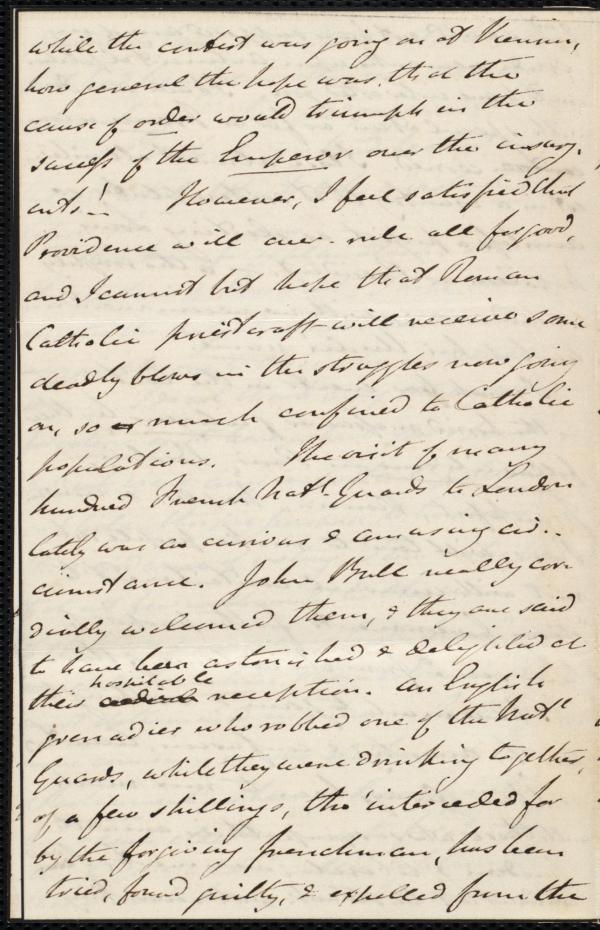 while the contest was going on at Vienna,
how general the hope was, that the
cause of order would triumph in the
success of the Emperor over the insurg-
ents! However, I feel satisfied that
Providence will over-rule all for good,
and I cannot but hope that Roman
Catholic priestcraft will receive some
deadly blows in the struggles now going
on, so much confined to Catholic
populations. The visit of many
hundred French Natl. Guards to London
lately was a curious & amusing cir-
cumstance. John Bull really cor-
dially welcomed them, & they are said
to have been astonished & delighted at
their hospitable reception. An English
grenadier who robbed one of the Natl
Guards, while they were drinking together,
of a few shillings, tho' interceded for
by the forgiving frenchman, has been
tried, found guilty, & expelled from the